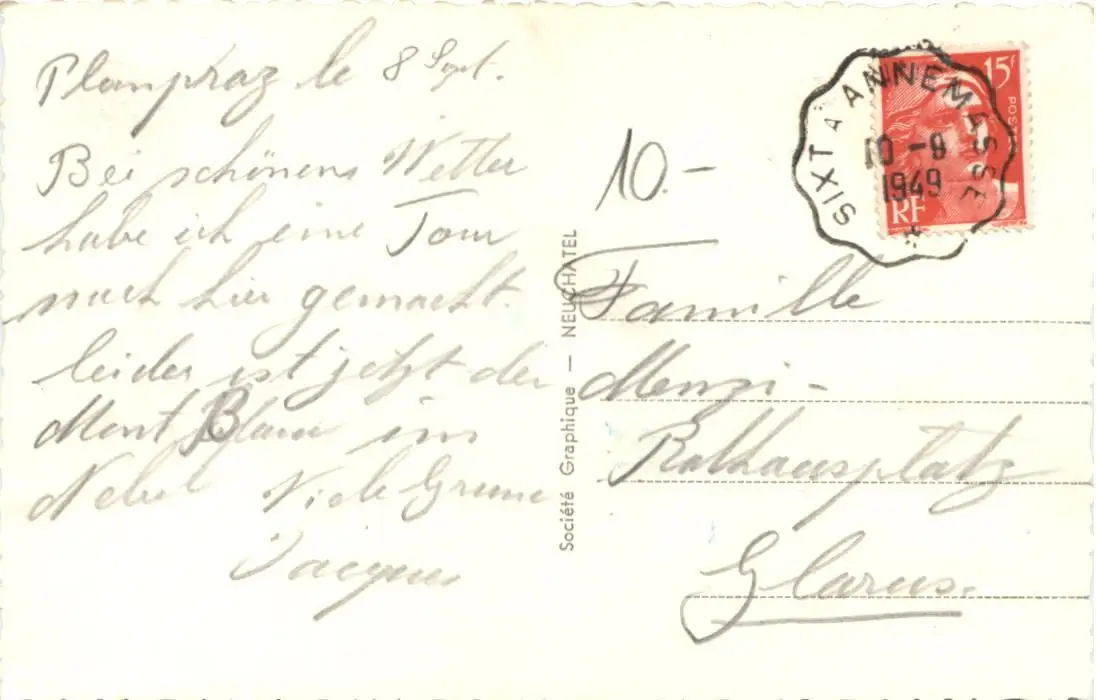 Planpraz le 8 Sept.
Bei schönens Wetter
habe ich eine Tour
nach hier gemacht.
leider ist jetzt der
Mont Blanc im
Nebel Viele Grüsse
Jacques
10.-
Famille
Menzi-
Rathausplatz
Glarus.
Société Graphique — NEUCHATEL
SIXT À ANNEMASSE
10 -9
1949
15F
POSTES
RF